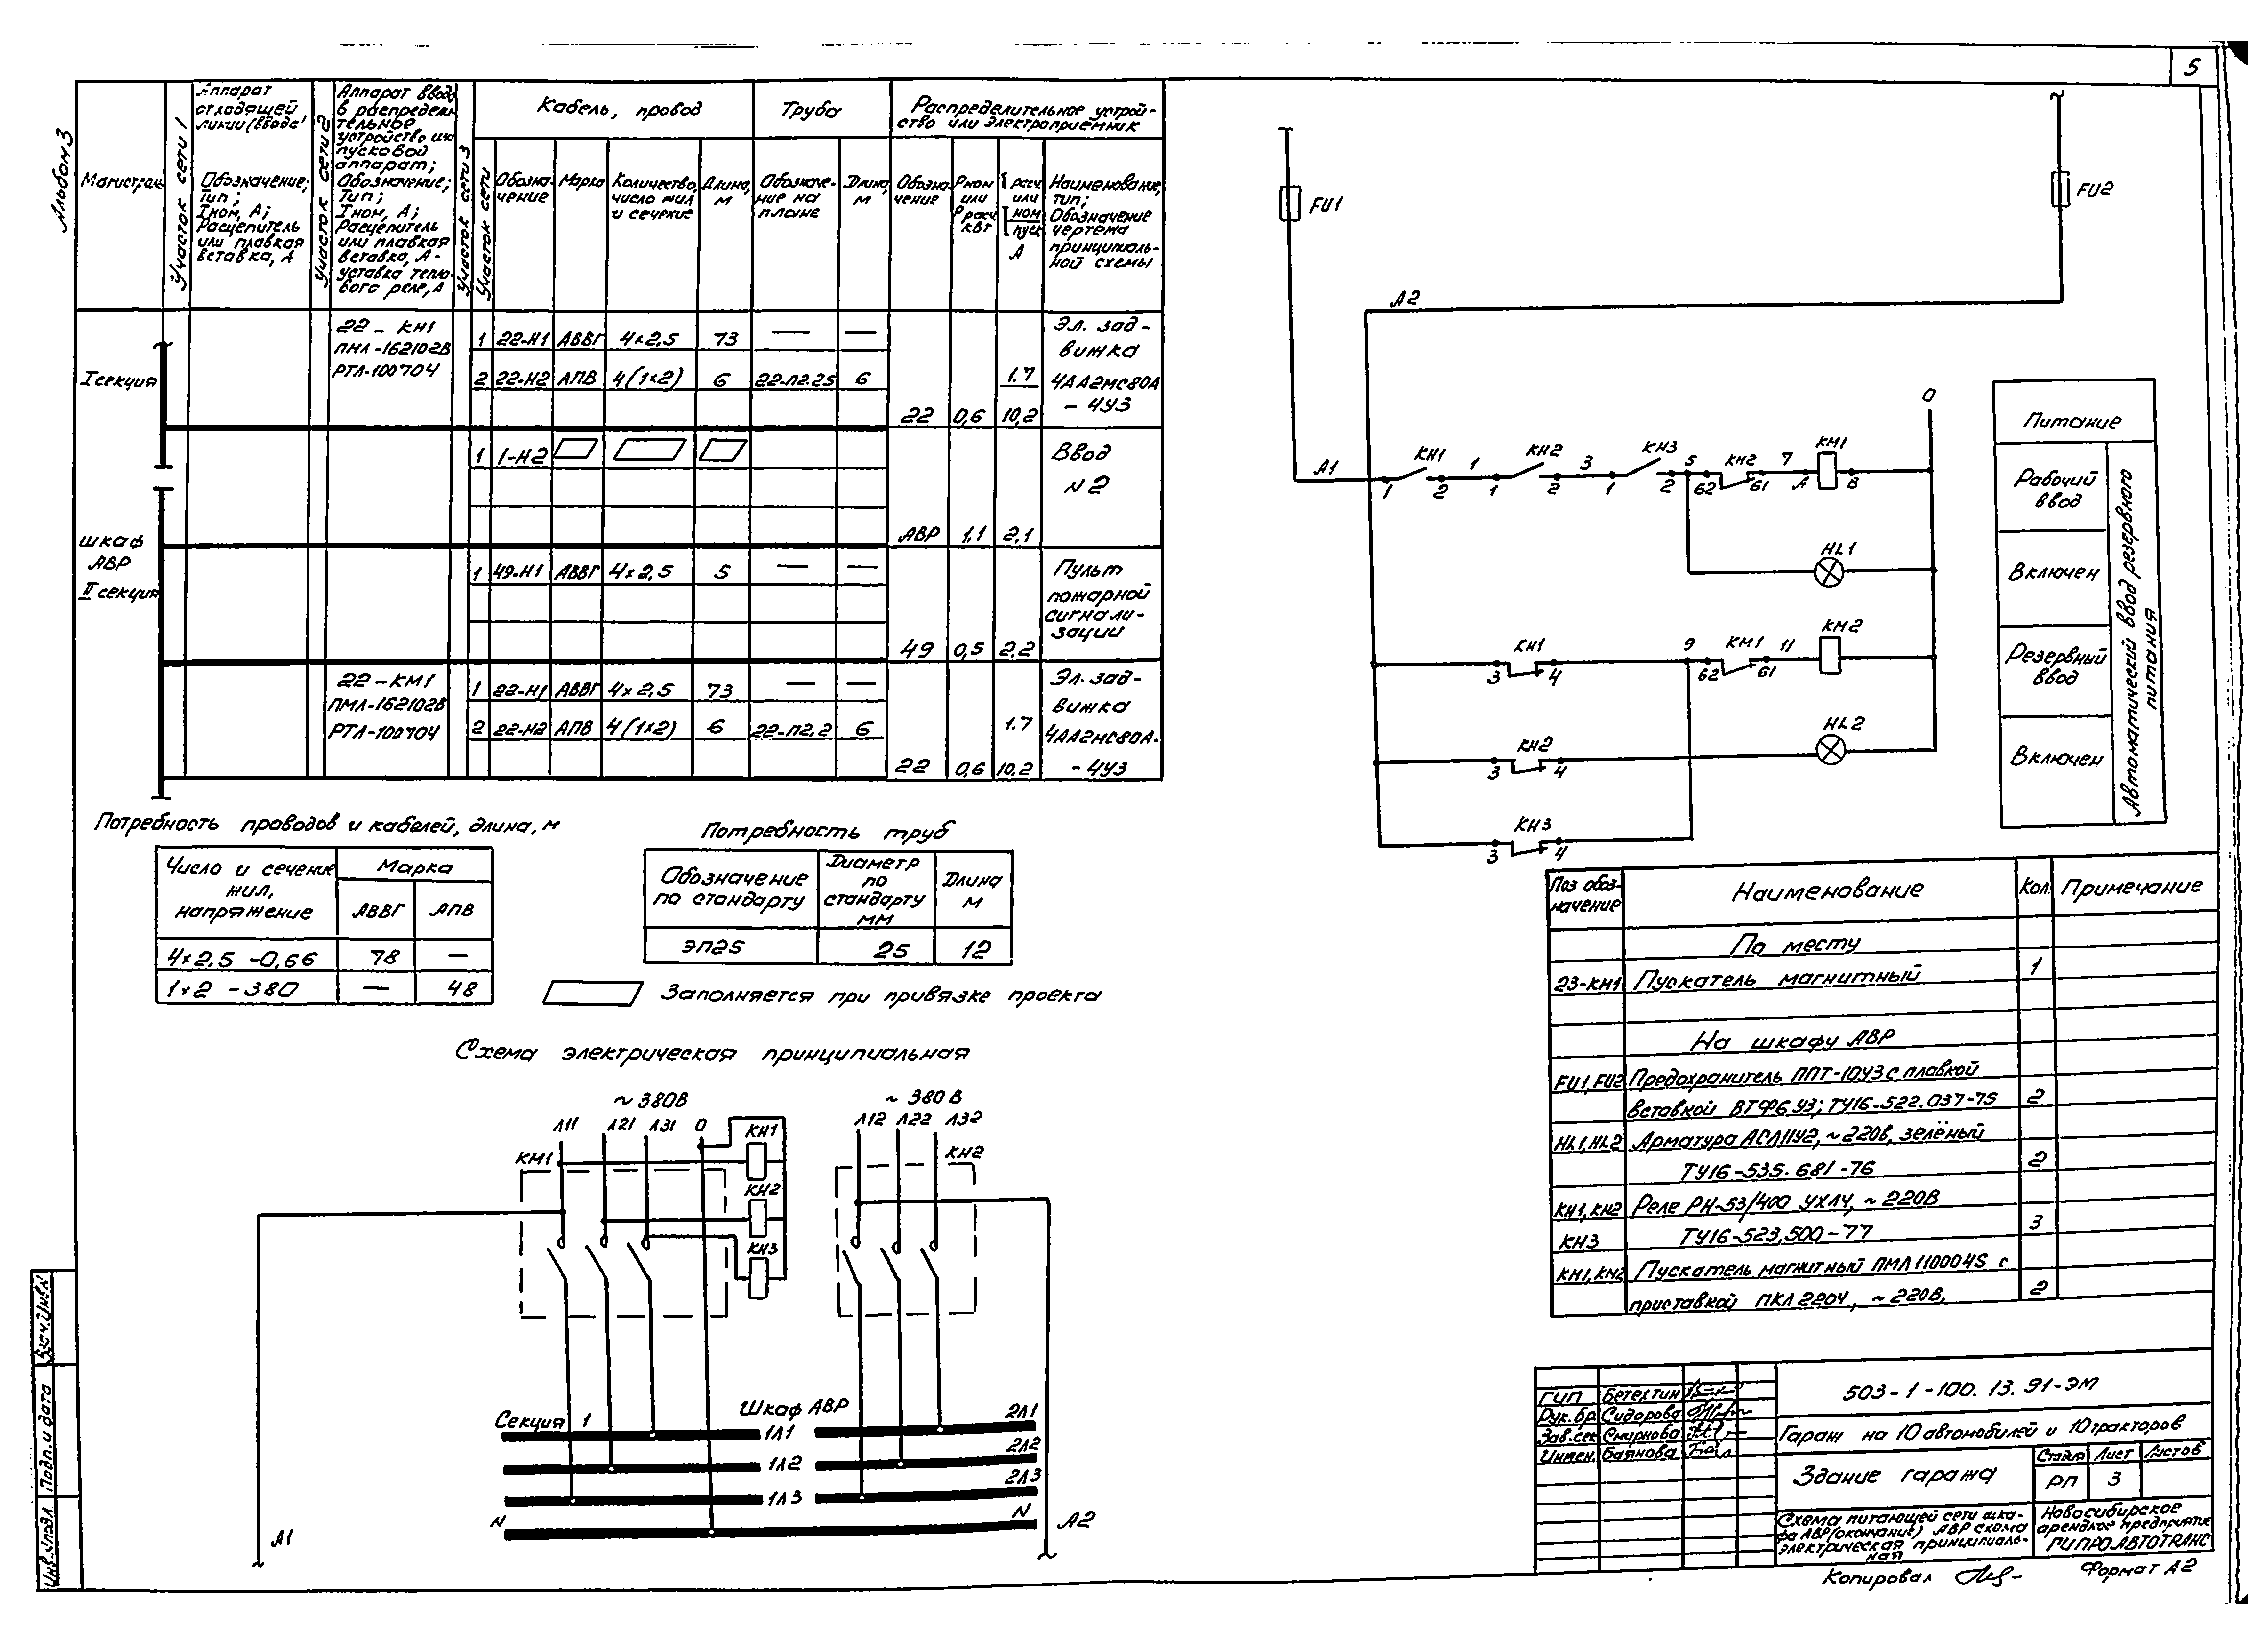 5
Альбом 3
Магистраль
Участок сети 1
Аппарат
отходящей
линии (ввода)
Обозначение;
Тип;
Iном, А;
Расцепитель
или плавкая
вставка, А
Участок сети 2
Аппарат ввода
в распредели-
тельное
устройство или
пусковой
аппарат;
Обозначение;
Тип;
Iном, А;
Расцепитель
или плавкая
вставка, А -
уставка тепло-
вого реле, А
Участок сети 3
Кабель, провод
Участок сети
Обозна-
чение
Марка
Количество,
число жил
и сечение
Длина,
м
Труба
Обозначе-
ние на
плане
Длина,
м
Распределительное устрой-
ство или электроприемник
Обозна-
чение
Рном
или
Ррасч
кВт
I расч.
или
I ном
I пуск
А
Наименование,
тип;
Обозначение
чертежа
принципиаль-
ной схемы
I секция
22 - КН1
ПМЛ-162102В
РТЛ-100704
1 22-Н1 АВВГ 4×2,5 73 — —
2 22-Н2 АПВ 4(1×2) 6 22-П2.25 6
22 0,6 1.7 10,2
Эл. зад-
вижка
4АА2МС80А
- 4У3
1 1-Н2
АВР 1,1 2,1
Ввод
N 2
шкаф
АВР
II секция
1 49-Н1 АВВГ 4×2,5 5 — —
49 0,5 2.2
Пульт
пожарной
сигнали-
зации
22 - КМ1
ПМЛ-162102В
РТЛ-100704
1 22-Н1 АВВГ 4×2,5 73 — —
2 22-Н2 АПВ 4(1×2) 6 22-П2,2 6
22 0,6 1.7 10,2
Эл. зад-
вижка
4АА2МС80А-
- 4У3
Потребность проводов и кабелей, длина, м
Число и сечение
жил,
напряжение
Марка
АВВГ АПВ
4×2,5 -0,66 78 —
1×2 - 380 — 48
Потребность труб
Обозначение
по стандарту
Диаметр
по
стандарту
мм
Длина
м
ЭП25 25 12
Заполняется при привязке проекта
Схема электрическая принципиальная
~ 380В
Л11 Л21 Л31 0
КМ1
КН1
КН2
КН3
~ 380 В
Л12 Л22 Л32
КН2
Секция 1
Шкаф АВР
1Л1
2Л1
1Л2
2Л2
1Л3
2Л3
N
N
А1
А2
FU1
FU2
А2
0
А1
КН1 1 КН2 3 КН3 5 КН2 7 КМ1
1 2 1 2 1 2 62 61 А В
HL1
КН1 9 КМ1 11 КМ2
3 4 62 61
КН2
3 4
HL2
КН3
3 4
Питание
Рабочий
ввод
Включен
Резервный
ввод
Включен
Автоматический ввод резервного
питания
Поз обоз-
начение
Наименование
Кол.
Примечание
По месту
23-КМ1 Пускатель магнитный 1
На шкафу АВР
FU1,FU2 Предохранитель ППТ-10У3 с плавкой
вставкой ВТФ6У3; ТУ16-522.037-75 2
HL1,HL2 Арматура АСЛ11У2, ~220в, зелёный
ТУ16-535.681-76 2
КН1,КН2 Реле РН-53/400 УХЛ4, ~220В
КН3 ТУ16-523,500-77 3
КМ1,КМ2 Пускатель магнитный ПМЛ110004S с
приставкой ПКЛ2204, ~220В, 2
503-1-100.13.91-ЭМ
ГИП Бетехтин
Рук.бр Сидорова
Зав.сек Смирнова
Инжен. Баянова
Гараж на 10 автомобилей и 10 тракторов
Здание гаража
Стадия Лист Листов
РП 3
Схема питающей сети шка-
фа АВР (окончание) АВР схема
электрическая принципиаль-
ная
Новосибирское
арендное предприятие
ГИПРОАВТОТРАНС
Копировал
Формат А2
Взам.Инв.N
Подп.и дата
Инв.Nподл.